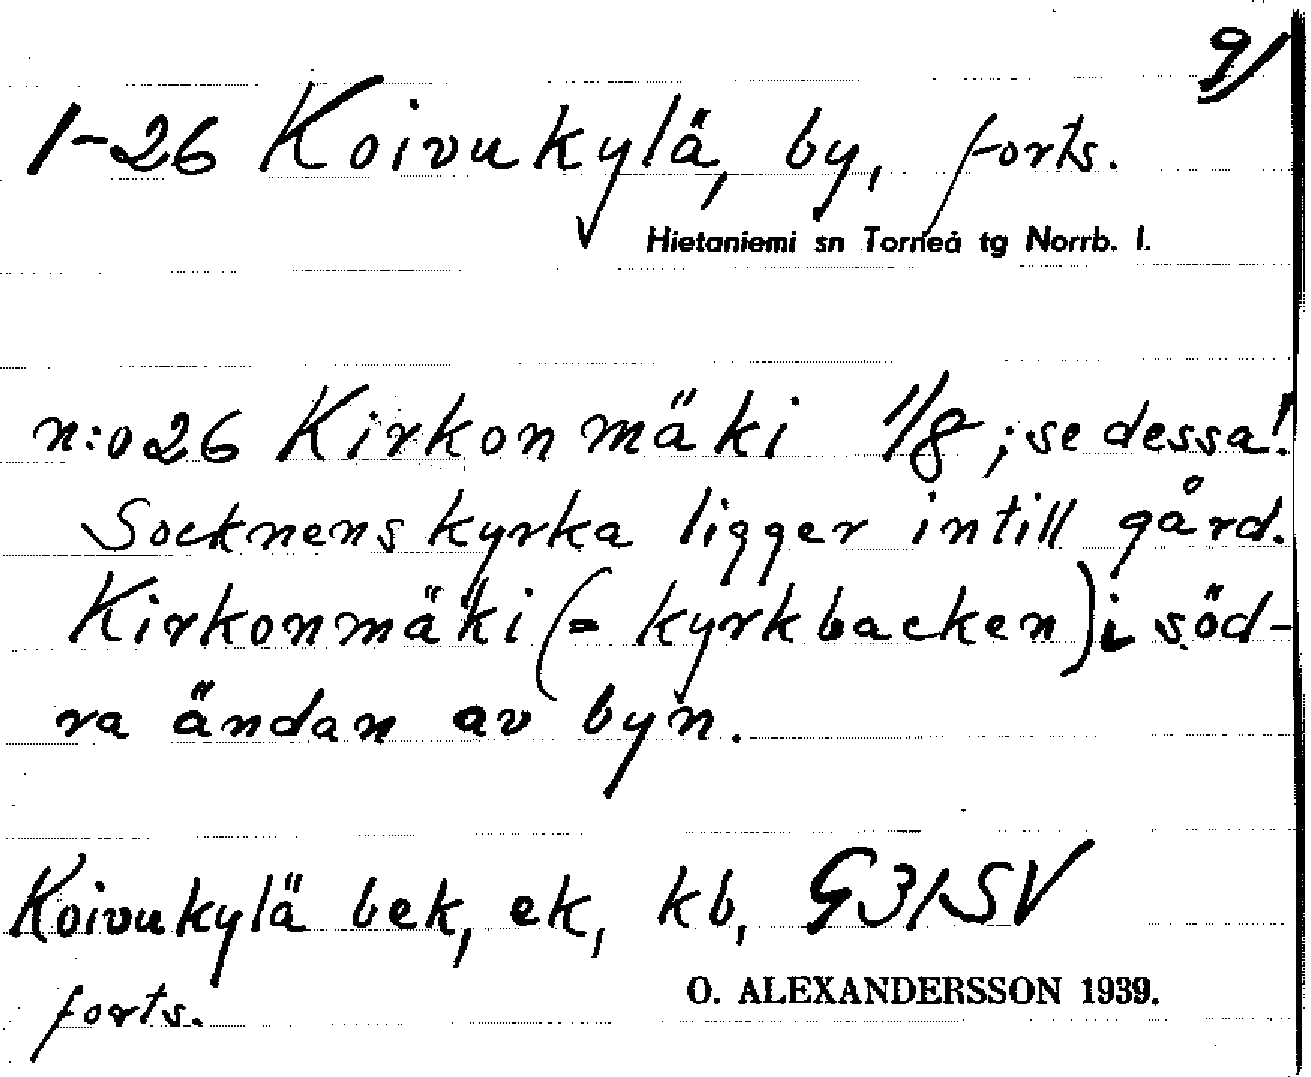 9/
1-26 Koivukylä, by, forts.
Hietaniemi sn Torneå tg Norrb. l.
n:o 26 Kirkonmäki 1/8; se dessa!
Socknens kyrka ligger intill gård.
Kirkonmäki (= kyrkbacken) i söd-
ra ändan av byn.
Koivukylä bek, ek, kb, G31SV
forts.
O. ALEXANDERSSON 1939.